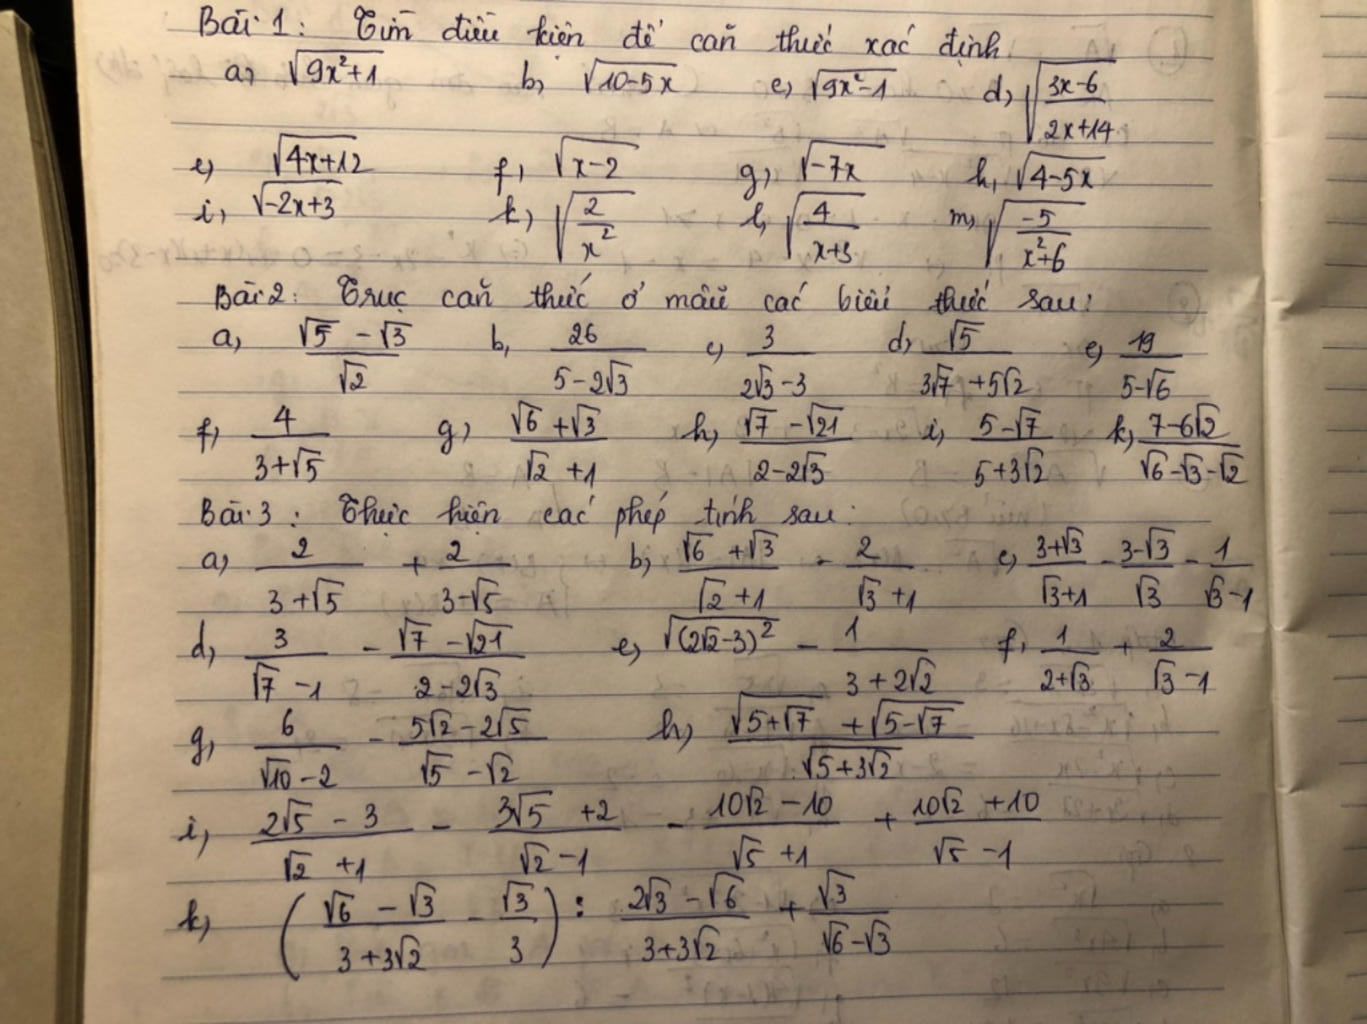 Bài 1: Tìm điều kiện để căn thức xác định
a, √(9x²+1) b, √(10-5x) c, √(9x²-1) d, √((3x-6)/(2x+14))
e, √(4x+12) f, √(x-2) g, √(-7x) h, √(4-5x)
i, √(-2x+3) k, √(2/x²) l, √(4/(x+3)) m, √(-5/(x²+6))
Bài 2: Trục căn thức ở mẫu các biểu thức sau:
a, (√5 - √3)/√2 b, 26/(5-2√3) c, 3/(2√3-3) d, √5/(3√7+5√2) e, 19/(5-√6)
f, 4/(3+√5) g, (√6+√3)/(√2+1) h, (√7-√21)/(2-2√3) i, (5-√7)/(5+3√2) k, (7-6√2)/(√6-√3-√2)
Bài 3: Thực hiện các phép tính sau:
a, 2/(3+√5) + 2/(3-√5) b, (√6+√3)/(√2+1) - 2/(√3+1) c, (3+√3)/(√3+1) - (3-√3)/√3 - 1/(√3-1)
d, 3/(√7-1) - (√7-√21)/(2-2√3) e, √((2√2-3)²) - 1/(3+2√2) f, 1/(2+√3) + 2/(√3-1)
g, 6/(√10-2) - (5√2-2√5)/(√5-√2) h, (√(5+√7) + √(5-√7))/√(5+3√2)
i, (2√5-3)/(√2+1) - (3√5+2)/(√2-1) - (10√2-10)/(√5+1) + (10√2+10)/(√5-1)
k, ((√6-√3)/(3+3√2) - √3/3) : (2√3-√6)/(3+3√2) + √3/(√6-√3)